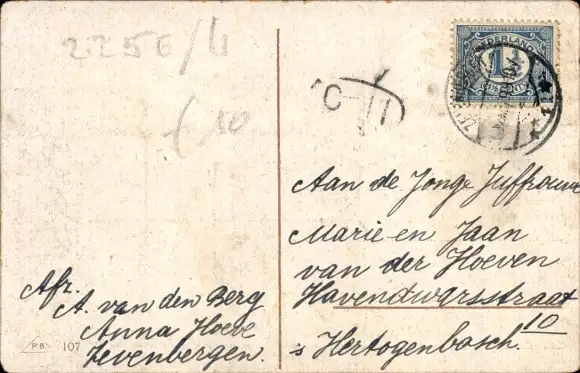 2256/4
10
NEDERLAND
1½
Aan de Jonge Juffrouw
Marie en Jaan
van der Hoeven
Havendwarsstraat
10
's Hertogenbosch.
Afz.
A. van den Berg
Anna Hoeve
Zevenbergen.
P.B. 107